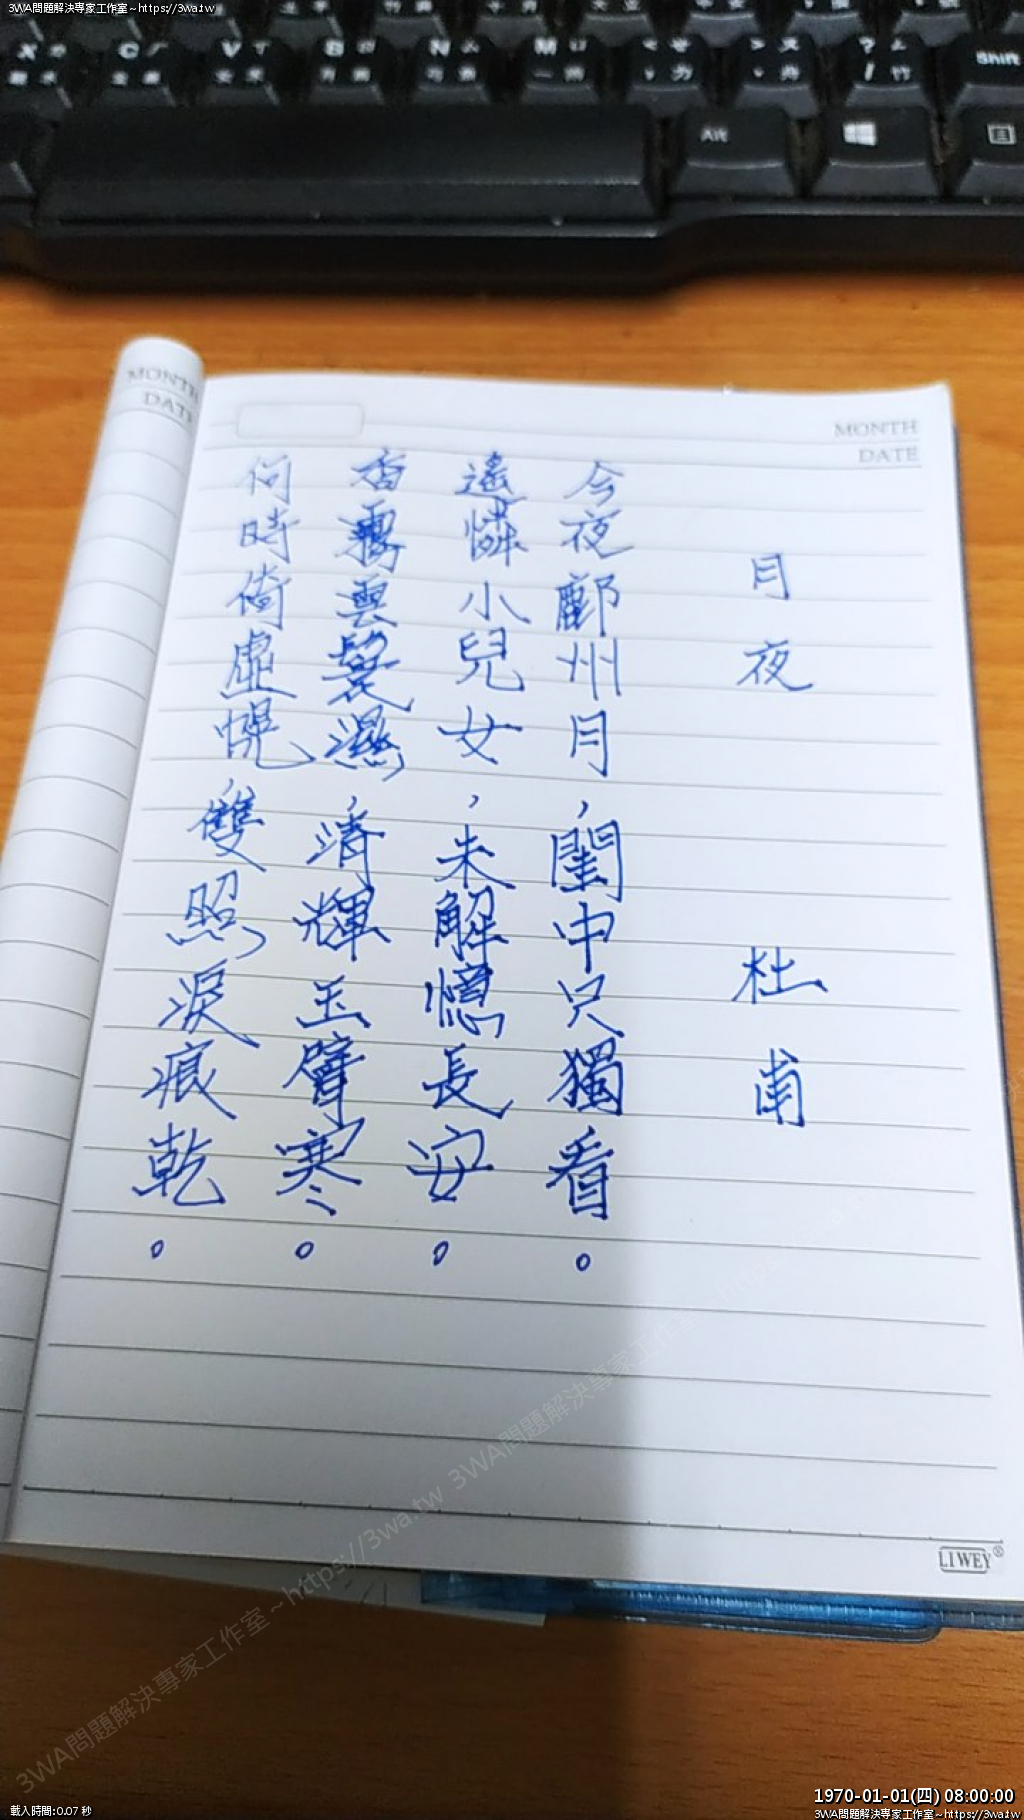 3WA問題解決專家工作室~https://3wa.tw
X
C
V
B
N
M
Shift
Alt
MONTH
DATE
MONTH
DATE
月夜
杜甫
今夜鄜州月,閨中只獨看。
遙憐小兒女,未解憶長安。
香霧雲鬟濕,清輝玉臂寒。
何時倚虛幌,雙照淚痕乾。
LIWEY®
3WA問題解決專家工作室~https://3wa.tw 3WA問題解決專家工作室~https://
載入時間:0.07 秒
1970-01-01(四) 08:00:00
3WA問題解決專家工作室~https://3wa.tw